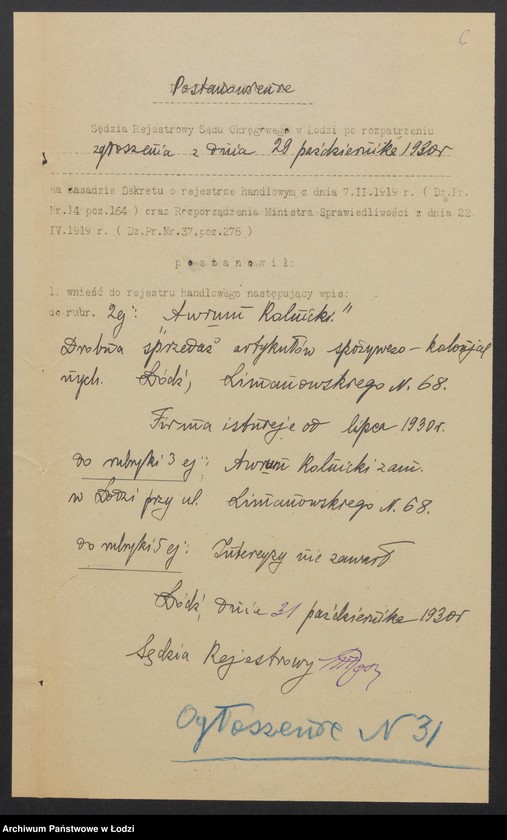 6
Postanowienie
Sędzia Rejestrowy Sądu Okręgowego w Łodzi po rozpatrzeniu
zgłoszenia z dnia 29 października 1930r
na zasadzie Dekretu o rejestrze handlowym z dnia 7.II.1919 r. ( Dz.Pr.
Nr.14 poz.164 ) oraz Rozporządzenia Ministra Sprawiedliwości z dnia 22
IV.1919 r. ( Dz.Pr.Nr.37,poz.278 )
p o s t a n o w i ł:
1. wnieść do rejestru handlowego następujący wpis:
do rubr. 2ej: "Awrum Kolnicki."
Drobna sprzedaż artykułów spożywczo-kolonjal
nych. Łódź, Limanowskiego N. 68.
Firma istnieje od lipca 1930r.
do rubryki 3 ej: Awrum Kolnicki zam.
w Łodzi przy ul. Limanowskiego N. 68.
do rubryki 5 ej: Intercyzy nie zawarł
Łódź, dnia 31 października 1930r
Sędzia Rejestrowy
Ogłoszenie N 31
Archiwum Państwowe w Łodzi